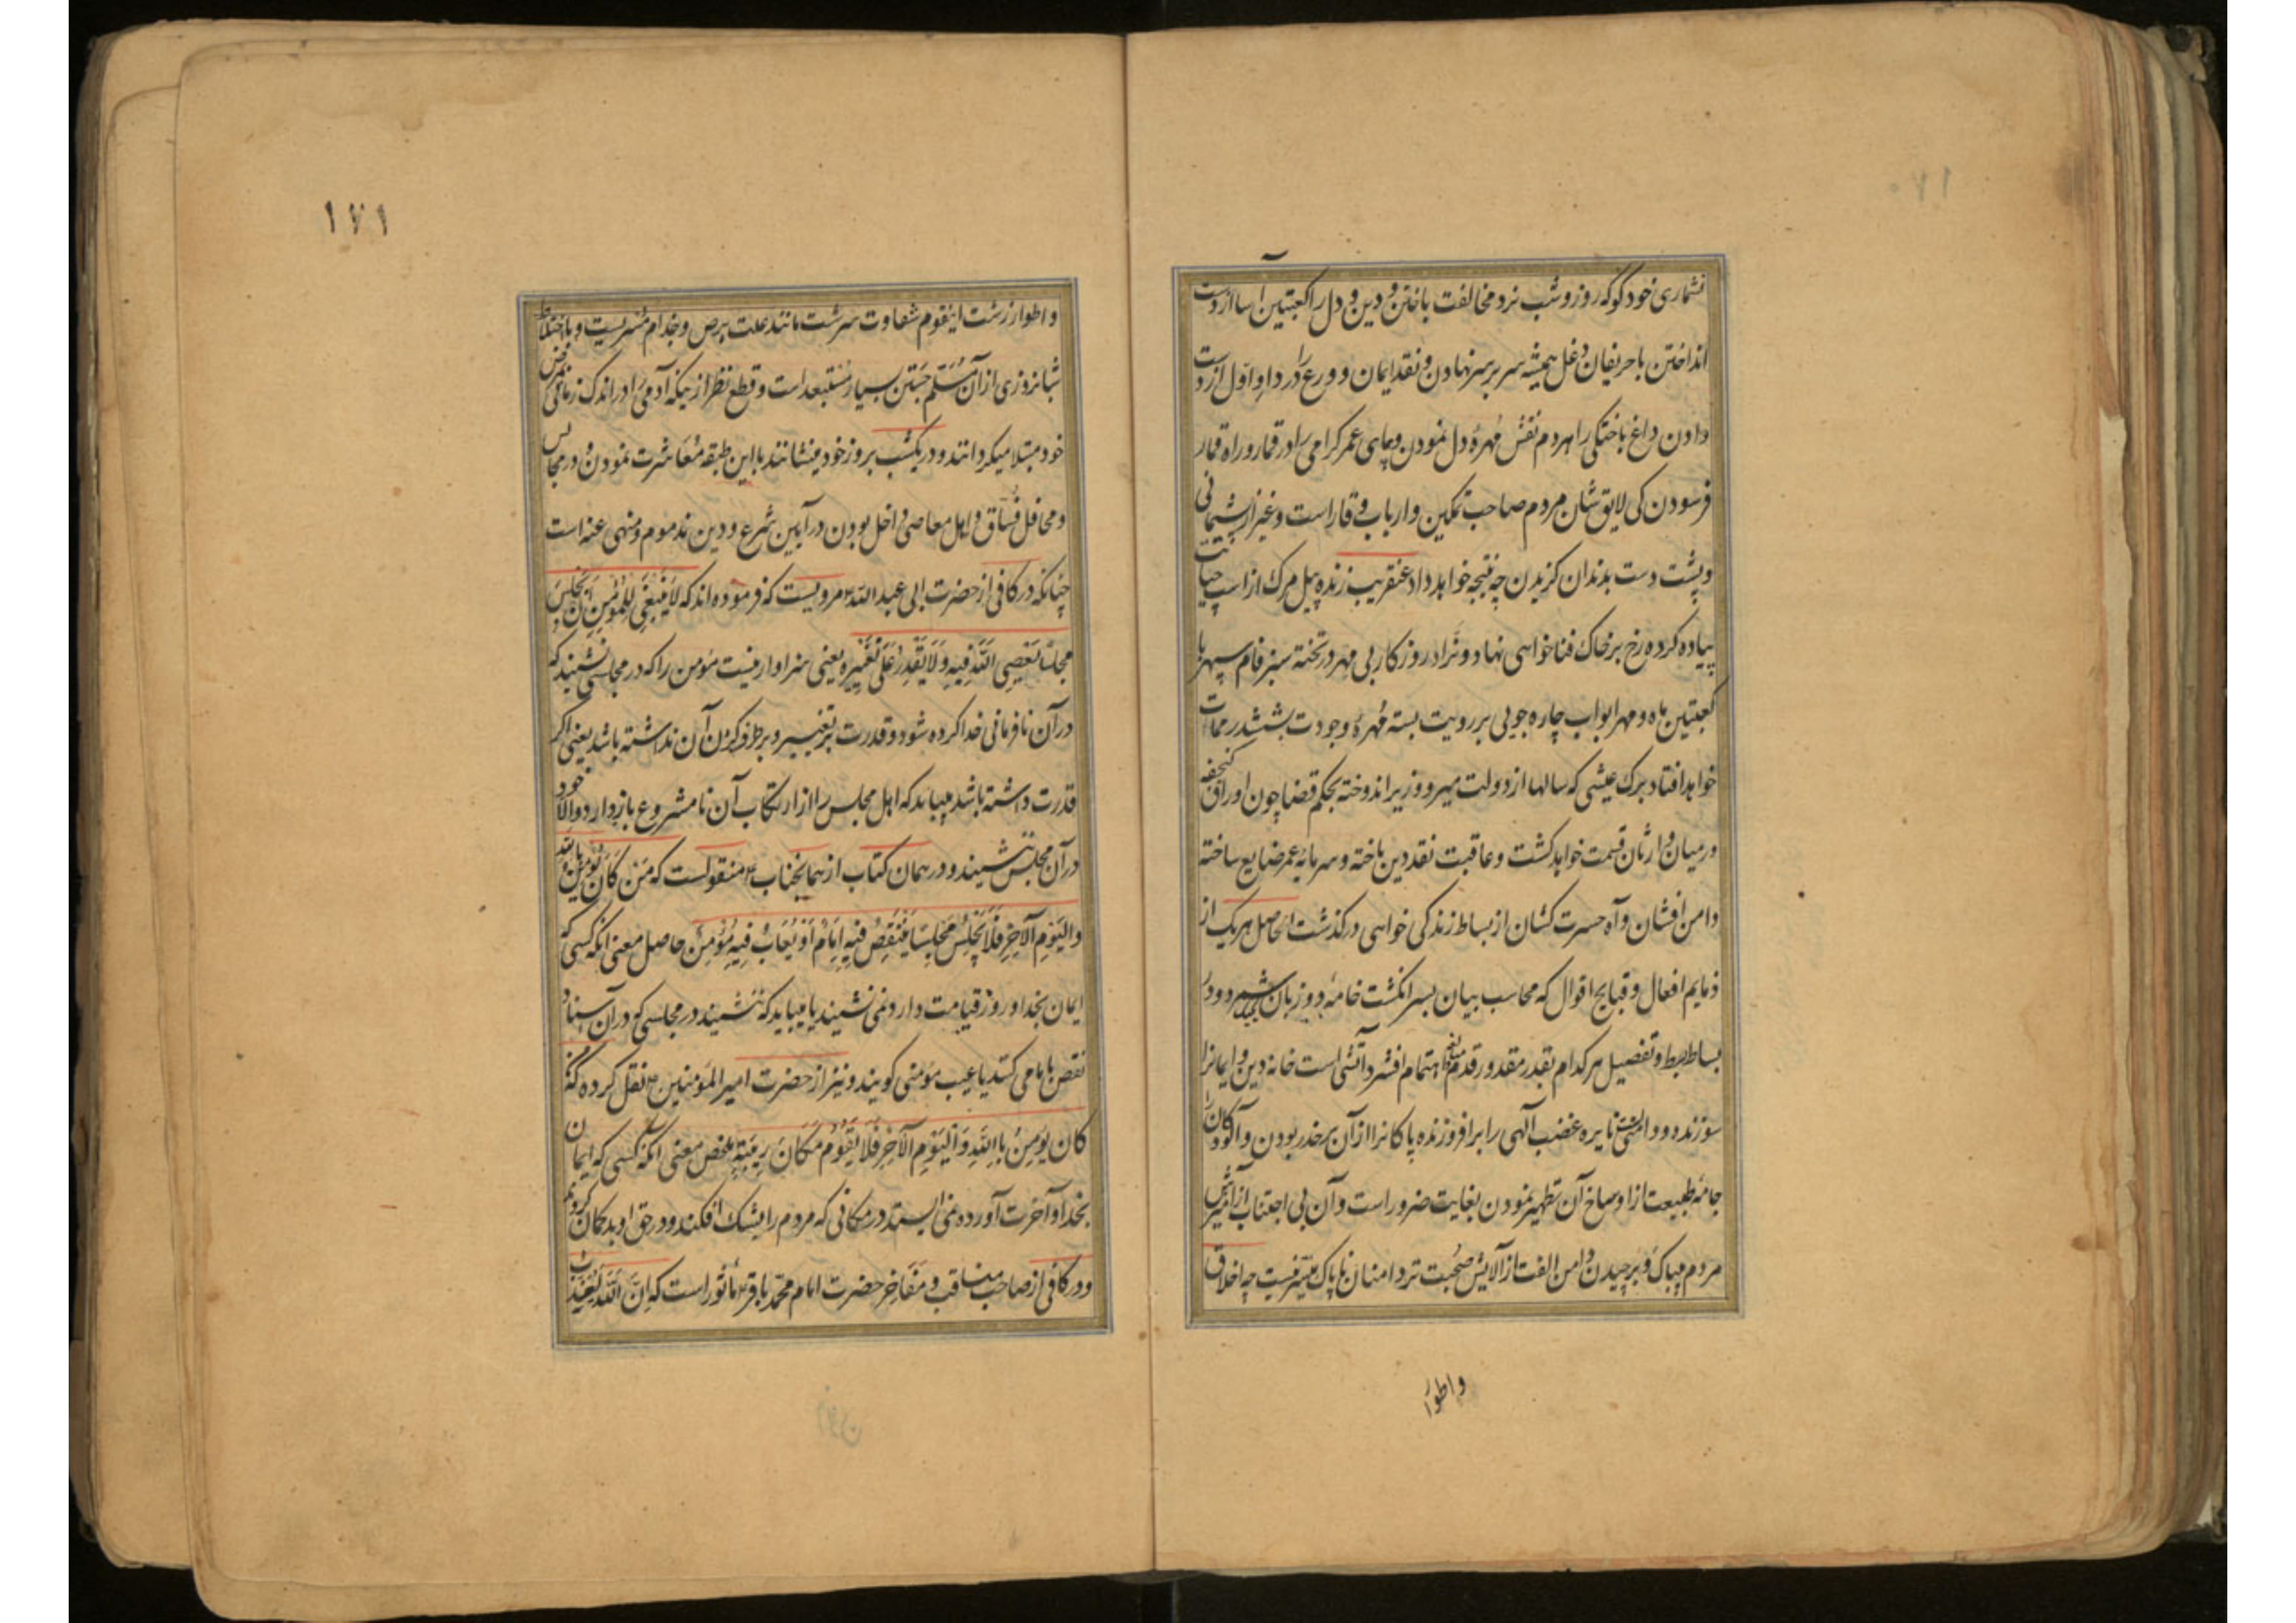 ۱۷۰
نشماری خود کو که روز و شب نرد مخالفت باختن و دین و دل را کعبتین آسا از دست
انداختن با حریفان دغل همیشه سر بر سر نهادن و نقد ایمان و ورع را در داو اول از دست
دادن داغ باختکی را هردم نقش مهرهٔ دل نمودن و پهای عمر کرامی را در قمار و راه قمار
فرسودن کی لایق شان مردم صاحب تمکین و ارباب وقار است و غیر از پشیمانی
و پشت دست بدندان کزیدن چه نتیجه خواهد داد عنقریب زنده پیل مرک از اسب حیات
پیاده کرده رخ بر خاک فنا خواهی نهاد و ترا در روزکار بی مهر در تخته سبز فام سپهر با
کعبتین ماه و مهر ابواب چاره جویی بر رویت بسته مهرهٔ وجودت بششدر ممات
خواهد افتاد برک عیشی که سالها از دولت میر و وزیر اندوخته بحکم قضا چون اوراق کنجفه
در میان وارثان قسمت خواهد کشت و عاقبت نقد دین باخته و سرمایه عمر ضایع ساخته
دامن افشان و آه حسرت کشان از بساط زندکی خواهی درکذشت الحاصل هر یک از
ذمایم افعال و قبایح اقوال که محاسب بیان بسر انکشت خامهٔ دو زبان شمرد و در
بساط بسط و تفصیل هر کدام بقدر مقدور قدم اهتمام افشرد آتشی است خانه دین و ایمانرا
سوزنده و دامنی نایره غضب الهی را برافروزنده پاکانرا از آن بر حذر بودن و آلودکان را
جامهٔ طبیعت از اوساخ آن تطهیر نمودن بغایت ضرور است و آن بی اجتناب از آمیزش
مردم بیباک و برچیدن دامن الفت از آلایش صحبت تردامنان ناپاک میسر نیست چه اخلاق
و اطوار
۱۷۱
و اطوار زشت اینقوم شقاوت سرشت مانند علت برص و جذام مسریست و با اختلاط
شبانروزی از آن مسلم جستن بسیار مستبعد است و قطع نظر از یکه آدمی را در اندک زمانی بمرض
خود مبتلا میکردانند و در یکشب بروز خود مینشانند با این طبقه معاشرت نمودن و در مجالس
و محافل فساق و اهل معاصی داخل بودن در آیین شرع و دین مذموم و منهی عنه است
چنانکه در کافی از حضرت ابی عبد الله ع مرویست که فرموده اند که لَا یَنبَغِی لِلمُؤمِنِ اَن یَجلِسَ
مَجلِسًا یُعصَی اللهُ فِیهِ وَ لَا یَقدِرُ عَلَی تَغیِیرِهِ یعنی سزاوار نیست مؤمن را که در مجلسی نشیند که
در آن نافرمانی خدا کرده شود و قدرت بر تغییر و برطرف کردن آن نداشته باشد یعنی اکر
قدرت داشته باشد میباید که اهل مجلس را از ارتکاب آن نامشروع باز دارد و الا خود
در آن مجلس ننشیند و در همان کتاب از همانجناب ع منقولست که مَن کَانَ یُؤمِنُ بِاللهِ
وَ الیَومِ الآخِرِ فَلَا یَجلِس مَجلِسًا یُنتَقَصُ فِیهِ اِمَامٌ اَو یُعَابُ فِیهِ مُؤمِنٌ حاصل معنی انکه کسی که
ایمان بخدا و روز قیامت دارد نمی نشیند یا میباید که ننشیند در مجلسی که در آن اسناد
نقص بامامی کنند یا عیب مؤمنی کویند و نیز از حضرت امیر المؤمنین ع نقل کرده که من
کَانَ یُؤمِنُ بِاللهِ وَ الیَومِ الآخِرِ فَلَا یَقُومُ مَکَانَ رِیبَةٍ ملخص معنی آنکه کسی که ایمان
بخدا و آخرت آورده نمی ایستد در مکانی که مردم را بشک افکند و در حق او بدکمان کردند
و در کافی از صاحب مناقب و مفاخر حضرت امام محمد باقر ع مأثور است که اِنَّ اللهَ لَیُعَذِّبُ